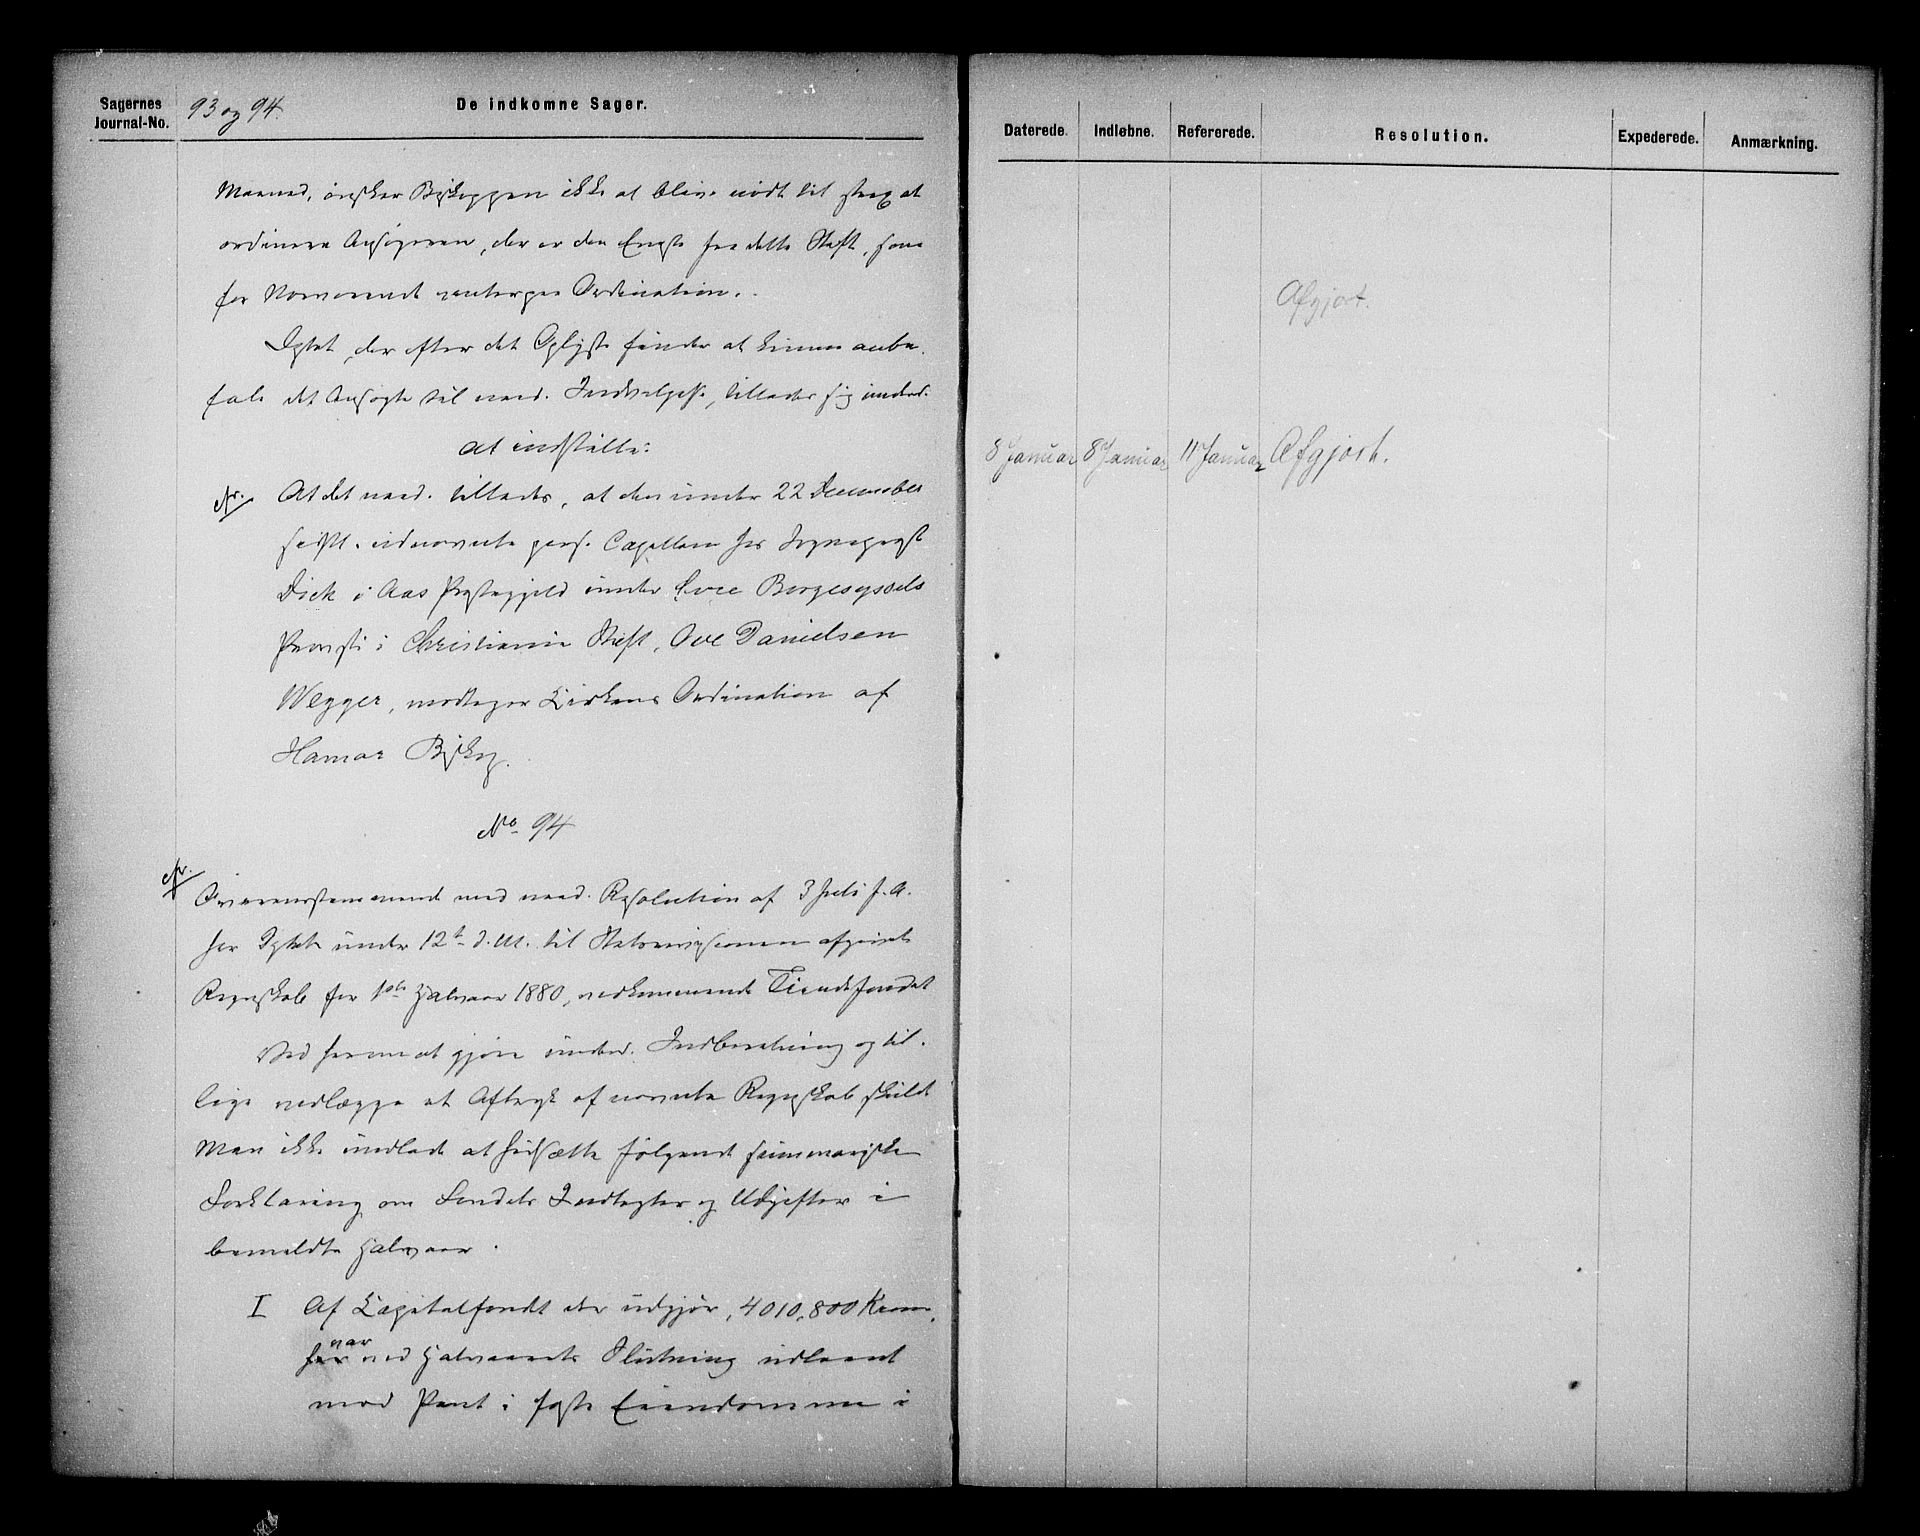 Sagernes
Journal-No.
93 og 94.
De indkomne Sager.
Maaned, ønsker Biskoppen ikke at blive nødt til strax at
ordinere Ansøgeren, der er den Eneste fra dette Stift, som
for Nærværende venter paa Ordination.
Dptet, der efter det Oplyste finder at kunne anbe-
fale det Ansøgte til naad. Indvilgelse, tillader sig underd.
at indstille:
At det naad. tillades, at den under 22 December
sidstl. udnævnte pers. Capellan hos Sogneprest
Dick i Aas Prestegjeld under Øvre Borgesyssels
Provsti i Christiania Stift, Ove Danielsen
Wegger, modtager Kirkens Ordination af
Hamar Biskop.
No 94
Overensstemmende med naad. Resolution af 3 Juli f. A.
har Dptet under 12te d. M. til Statsrevisionen afgivet
Regnskab for 1ste Halvaar 1880, vedkommende Tiendefondet
Ved herom at gjøre underd. Indberetning og til-
lige vedlægge et Aftryk af nævnte Regnskab skulde
Man ikke undlade at hidsætte følgende summariske
Forklaring om Fondets Indtægter og Udgifter i
bemeldte Halvaar.
I Af Capitalfondet der udgjør, 4010,800 Kroner,
var
har ved Halvaarets Slutning udlaant
mod Pant i faste Eiendomme i
Daterede.
Indløbne.
Refererede.
Resolution.
Expederede.
Anmærkning.
Afgjort.
8 Januar 8 Januar 11 Januar Afgjort.